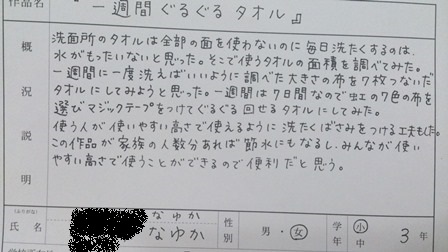 作品名 『一週間ぐるぐるタオル』
概況説明
洗面所のタオルは全部の面を使わないのに毎日洗たくするのは、
水がもったいないと思った。そこで使うタオルの面積を調べてみた。
一週間に一度洗えばいいように調べた大きさの布を7枚つないだ
タオルにしてみようと思った。一週間は7日間なので虹の7色の布を
選びマジックテープをつけてぐるぐる回せるタオルにしてみた。
使う人が使いやすい高さで使えるように洗たくばさみをつける工夫もした。
この作品が家族の人数分あれば節水にもなるし、みんなが使い
やすい高さで使うことができるので便利だと思う。
(ふりがな) なゆか
氏名 なゆか 性別 男・女 学年 小 中 3年